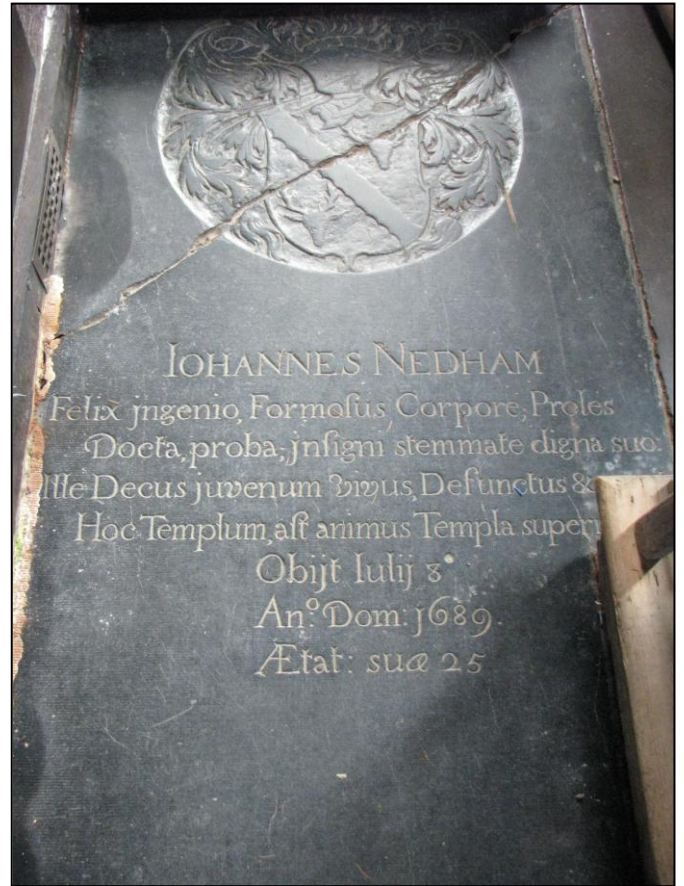 IOHANNES NEDHAM
Felix jngenio, Formoſus Corpore, Proles
Docta, proba, jnſigni stemmate digna suo:
Ille Decus juvenum vivus, Defunctus &
Hoc Templum, aſt animus Templa super
Obijt Iulij 8º
An.º Dom: j689.
Ætat: suæ 25